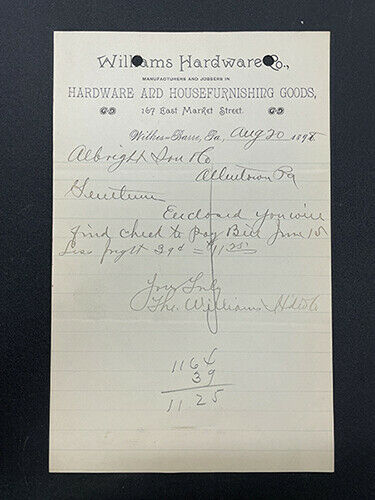 Williams Hardware Co.,
MANUFACTURERS AND JOBBERS IN
HARDWARE AND HOUSEFURNISHING GOODS,
167 East Market Street.
Wilkes-Barre, Pa., Aug 20 1898
Albright Son & Co
Allentown Pa
Gentlemen
Enclosed you will
find check to pay Bill June 15
Less frght 39¢ = $11.25
Yours Truly
The Williams Hdw Co
1164
39
1125